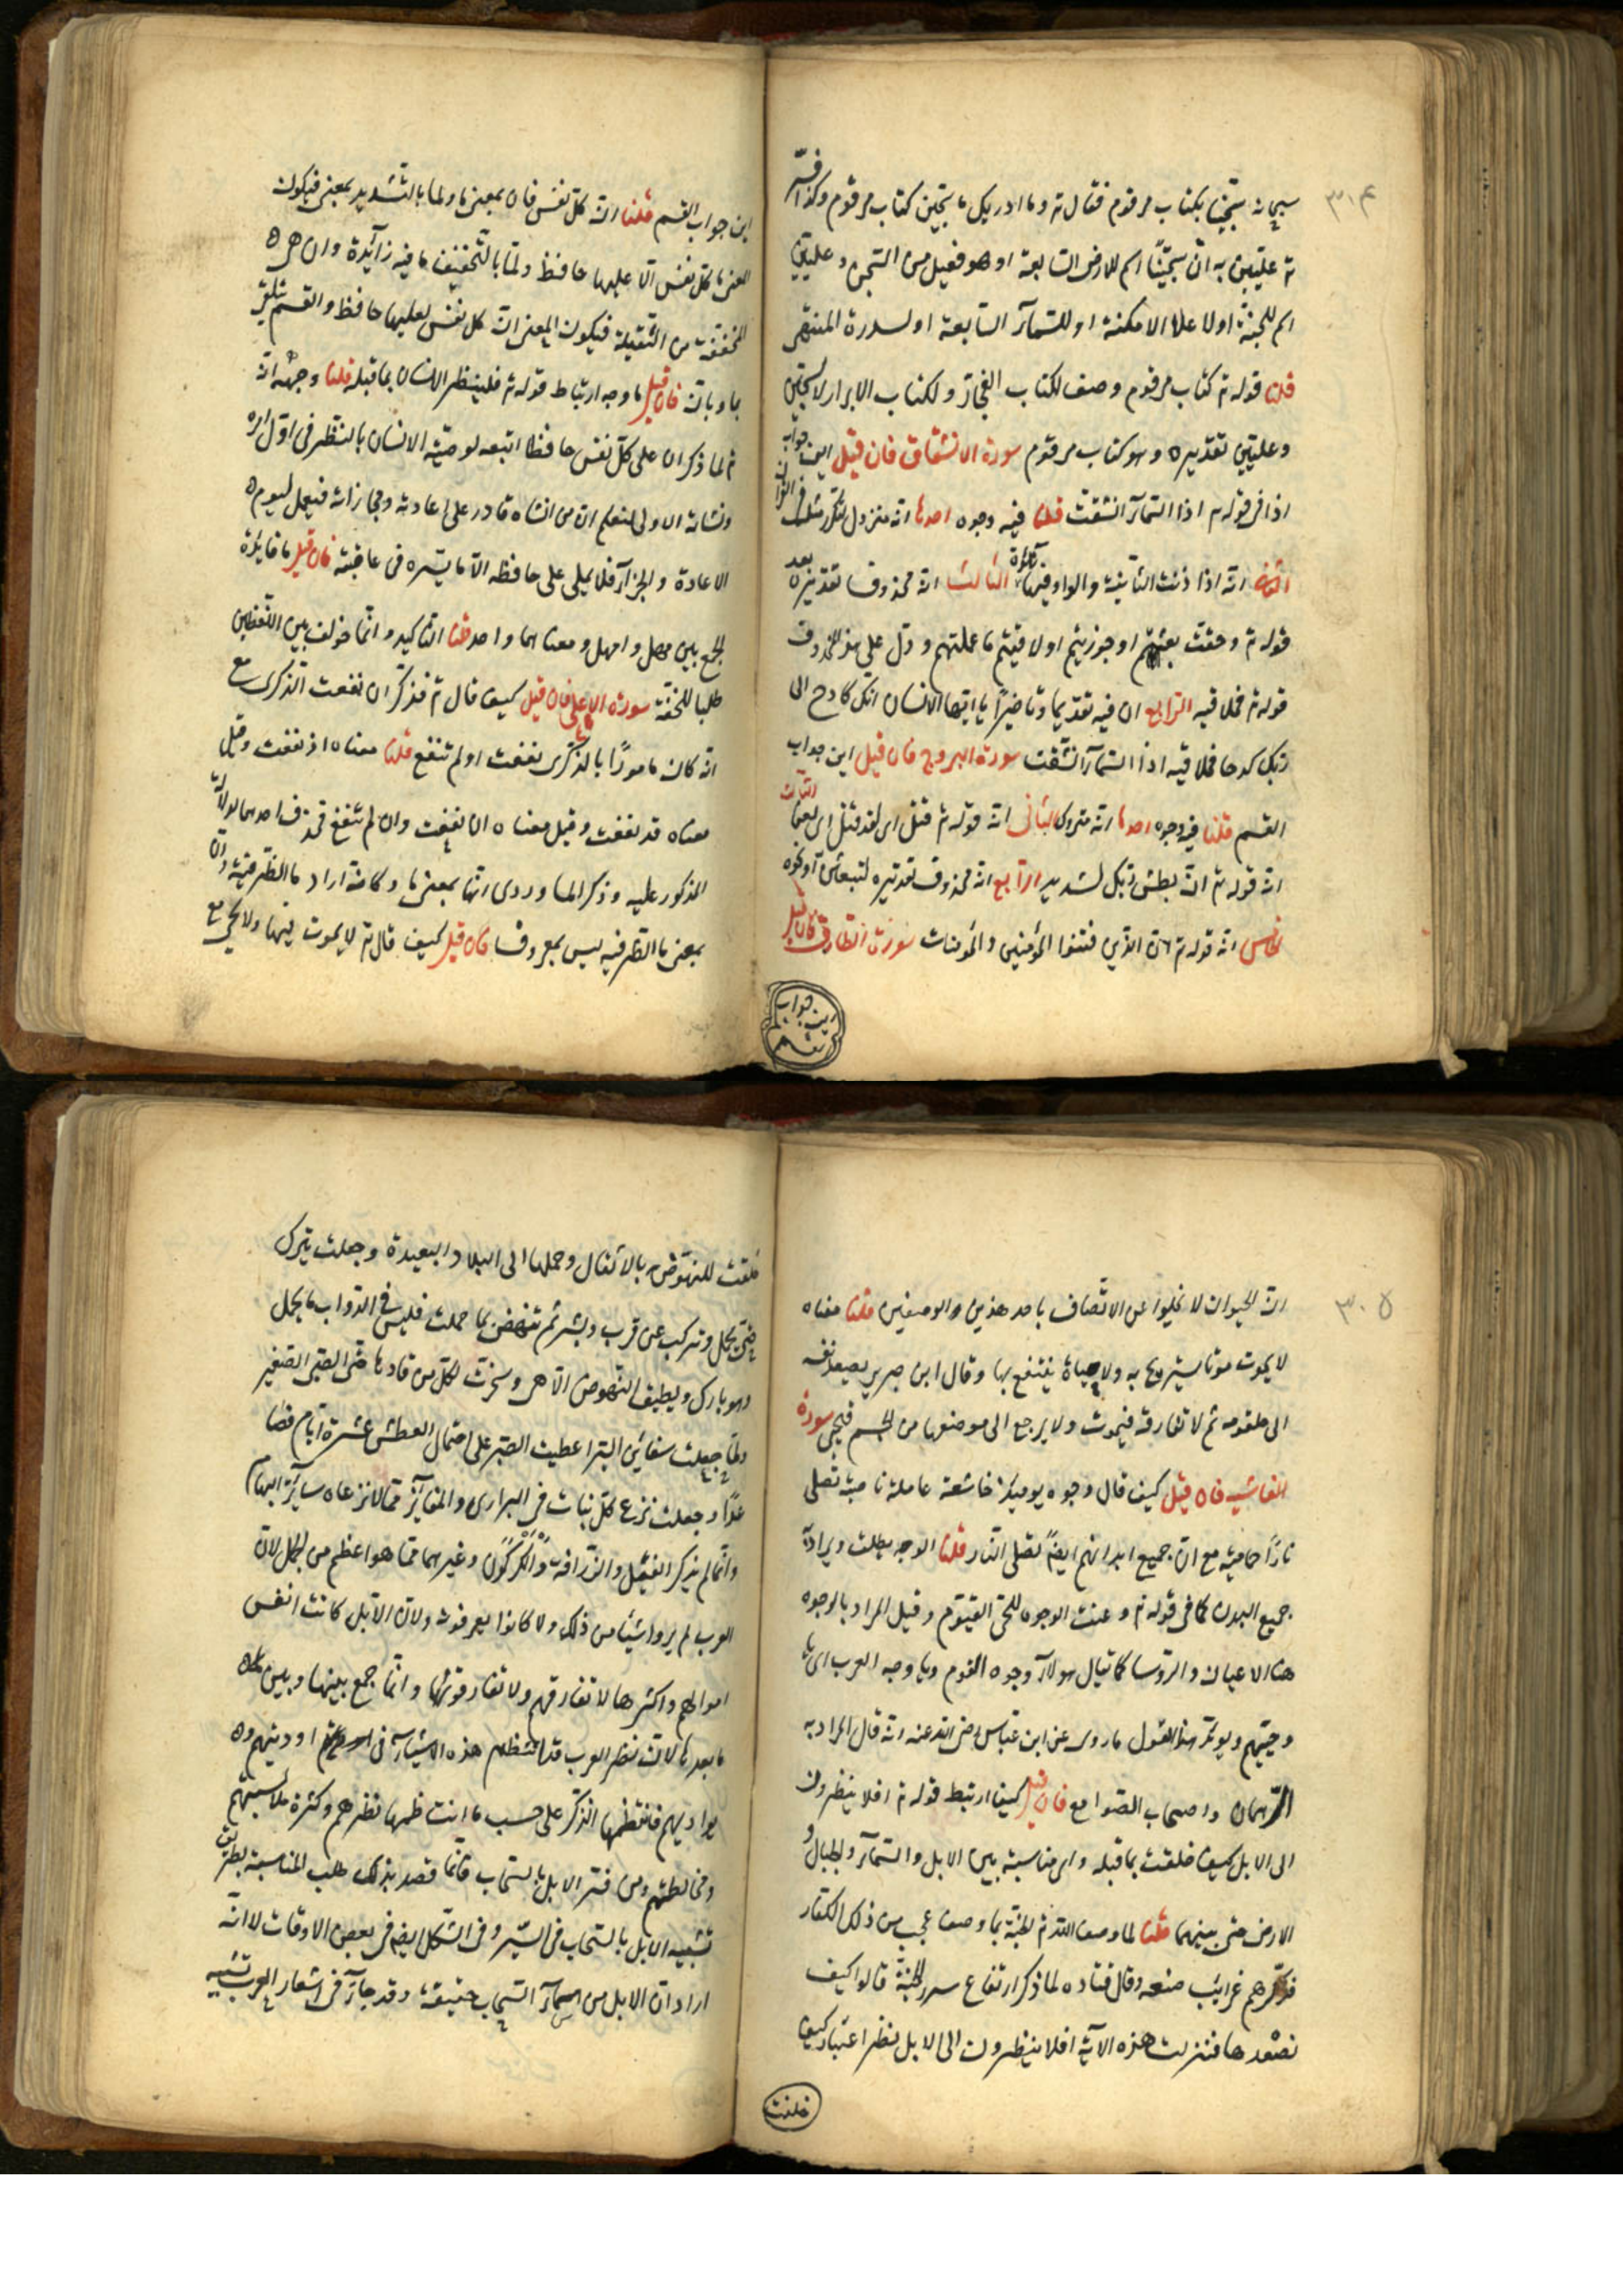 ٣٠٤
سبحانه سجينا بكتاب مرقوم فقال تع وما ادريك ما سجين كتاب مرقوم وكذا فسر
تع عليين به ان سجينًا اسم للارض السابعة او هو فعيل من السجن وعليين
اسم للجنة او لاعلا الامكنة او للسمآء السابعة او لسدرة المنتهى
قلنا قوله تع كتاب مرقوم وصف لكتاب الفجار ولكتاب الابرار لا لسجين
وعليين تقديره وهو كتاب مرقوم سورة الانشقاق فان قيل اين جواب
اذا فى قوله تع اذا السمآء انشقت قلنا فيه وجوه احدها انه متروك لتكرر مثله فى القران
الثانى انه اذنت الثانية والواو فيها زائدة الثالث انه محذوف تقديره بعد
قوله تع وحقت بعثتم او جوزيتم او لاقيتم ما عملتم ودل على هذا المحذوف
قوله تع فملاقيه الرابع ان فيه تقديما وتاخيرًا يا ايها الانسان انك كادح الى
ربك كدحا فملاقيه اذا السمآء انشقت سورة البروج فان قيل اين جواب
القسم قلنا فيه وجوه احدها انه متروك الثانى انه قوله تع قتل اى لقد قتل اى لعن الثالث
انه قوله تع ان بطش ربك لشديد الرابع انه محذوف تقديره لتبعثن او نحوه
الخامس انه قوله تع ان الذين فتنوا المؤمنين والمؤمنات سورة الطارق فان قيل
اين جواب القسم
اين جواب القسم قلنا ان كل نفس فان بمعنى ما ولما بالتشديد بمعنى الا فيكون
المعنى ما كل نفس الا عليها حافظ ولما بالتخفيف ما فيه زآئدة وان هى
المخففة من الثقيلة فيكون المعنى ان كل نفس لعليها حافظ والقسم يتلقى
بما وبان فان قيل ما وجه ارتباط قوله تع فلينظر الانسان بما قبله قلنا وجهه انه
تع لما ذكر ان على كل نفس حافظا اتبعه لوصية الانسان بالنظر فى اول امره
ونشاته الاولى ليعلم ان من انشاه قادر على اعادته ومجازاته فيعمل ليوم
الاعادة والجزآء فلا يملى على حافظه الا ما يسره فى عاقبته فان قيل ما فايدة
الجمع بين مهل وامهل ومعناهما واحد قلنا التاكيد وانما خولف بين اللفظين
طلبا للخفة سورة الاعلى فان قيل كيف قال تع فذكر ان نفعت الذكرى مع
انه كان مامورًا بالذكرى نفعت او لم تنفع قلنا معناه اذ نفعت وقيل
معناه قد نفعت وقيل معناه ان نفعت وان لم تنفع فحذف احدهما لدلالة
المذكور عليه وذكر الما وردى انها بمعنى ما وكانه اراد ما الظرفية وان
بمعنى ما الظرفية ليس بمعروف فان قيل كيف قال تع لا يموت فيها ولا يحيى مع
٣٠٥
ان الحيوان لا يخلوا عن الاتصاف باحد هذين والوصفين قلنا معناه
لا يموت موتا يستريح به ولا حياة ينتفع بها وقال ابن جرير يصعد نفسه
الى حلقومه ثم لا تفارقه فيموت ولا يرجع الى موضعها من الجسم فيحيى سورة
الغاشية فان قيل كيف قال وجوه يوميذ خاشعة عاملة ناصبة تصلى
نارًا حامية مع ان جميع ابدانهم ايضا تصلى النار قلنا الوجه يطلق ويراد به
جميع البدن كما فى قوله تع وعنت الوجوه للحى القيوم وقيل المراد بالوجوه
هنا الاعيان والروسا كما يقال هولآء وجوه القوم ويا وجه العرب اى يا
وجيههم ويويد هذا القول ما روى عن ابن عباس رضى الله عنه انه قال المراد به
الرهبان واصحاب الصوامع فان قيل كيف ارتبط قوله تع افلا ينظرون
الى الابل كيف خلقت بما قبله واى مناسبة بين الابل والسمآء والجبال و
الارض حتى بينهما قلنا لما وصف الله تع الجنة بما وصف عجب من ذلك الكفار
فذكرهم غرائب صنعه وقال قتاده لما ذكر ارتفاع سرر الجنة قالوا كيف
نصعدها فنزلت هذه الآية افلا ينظرون الى الابل نظر اعتبار كيف
خلقت
خلقت للنهوض بالاثقال وحملها الى البلاد البعيدة وجعلت تبرك
حتى تحمل وتركب عن قرب ويسر ثم تنهض بما حملت فليس فى الدواب ما يحمل
وهو بارك ويطيق النهوض الا هى وسخرت لكل من قادها حتى الصبى الصغير
ولما جعلت سفائن البر اعطيت الصبر على احتمال العطش عشرة ايام فصا
عدًا وجعلت ترعى كل نبات فى البرارى والمفاوز مما لا ترعاه سائر البهايم
وانما لم يذكر الفيل والزرافة والكركدن وغيرهما مما هو اعظم من الجمل لان
العرب لم يروا شيئا من ذلك ولا كانوا يعرفونه ولان الابل كانت انفس
اموالهم واكثرها لا تفارقهم ولا تفارقونها وانما جمع بينها وبين
ما بعدها لان نظر العرب قد انتظم هذه الاشيآء فى اوديتهم و
بواديهم فانتظمها الذكر على حسب ما انتظمها نظرهم وكثرة ملابستهم
ومخالطتهم ومن فسر الابل بالسحاب فانما قصد بذلك طلب المناسبة بطريق
تشبيه الابل بالسحاب فى السير وفى الشكل ايضا فى بعض الاوقات لا انه
اراد ان الابل من اسمآء السحاب حقيقة وقد جآء فى اشعار العرب تشبيه